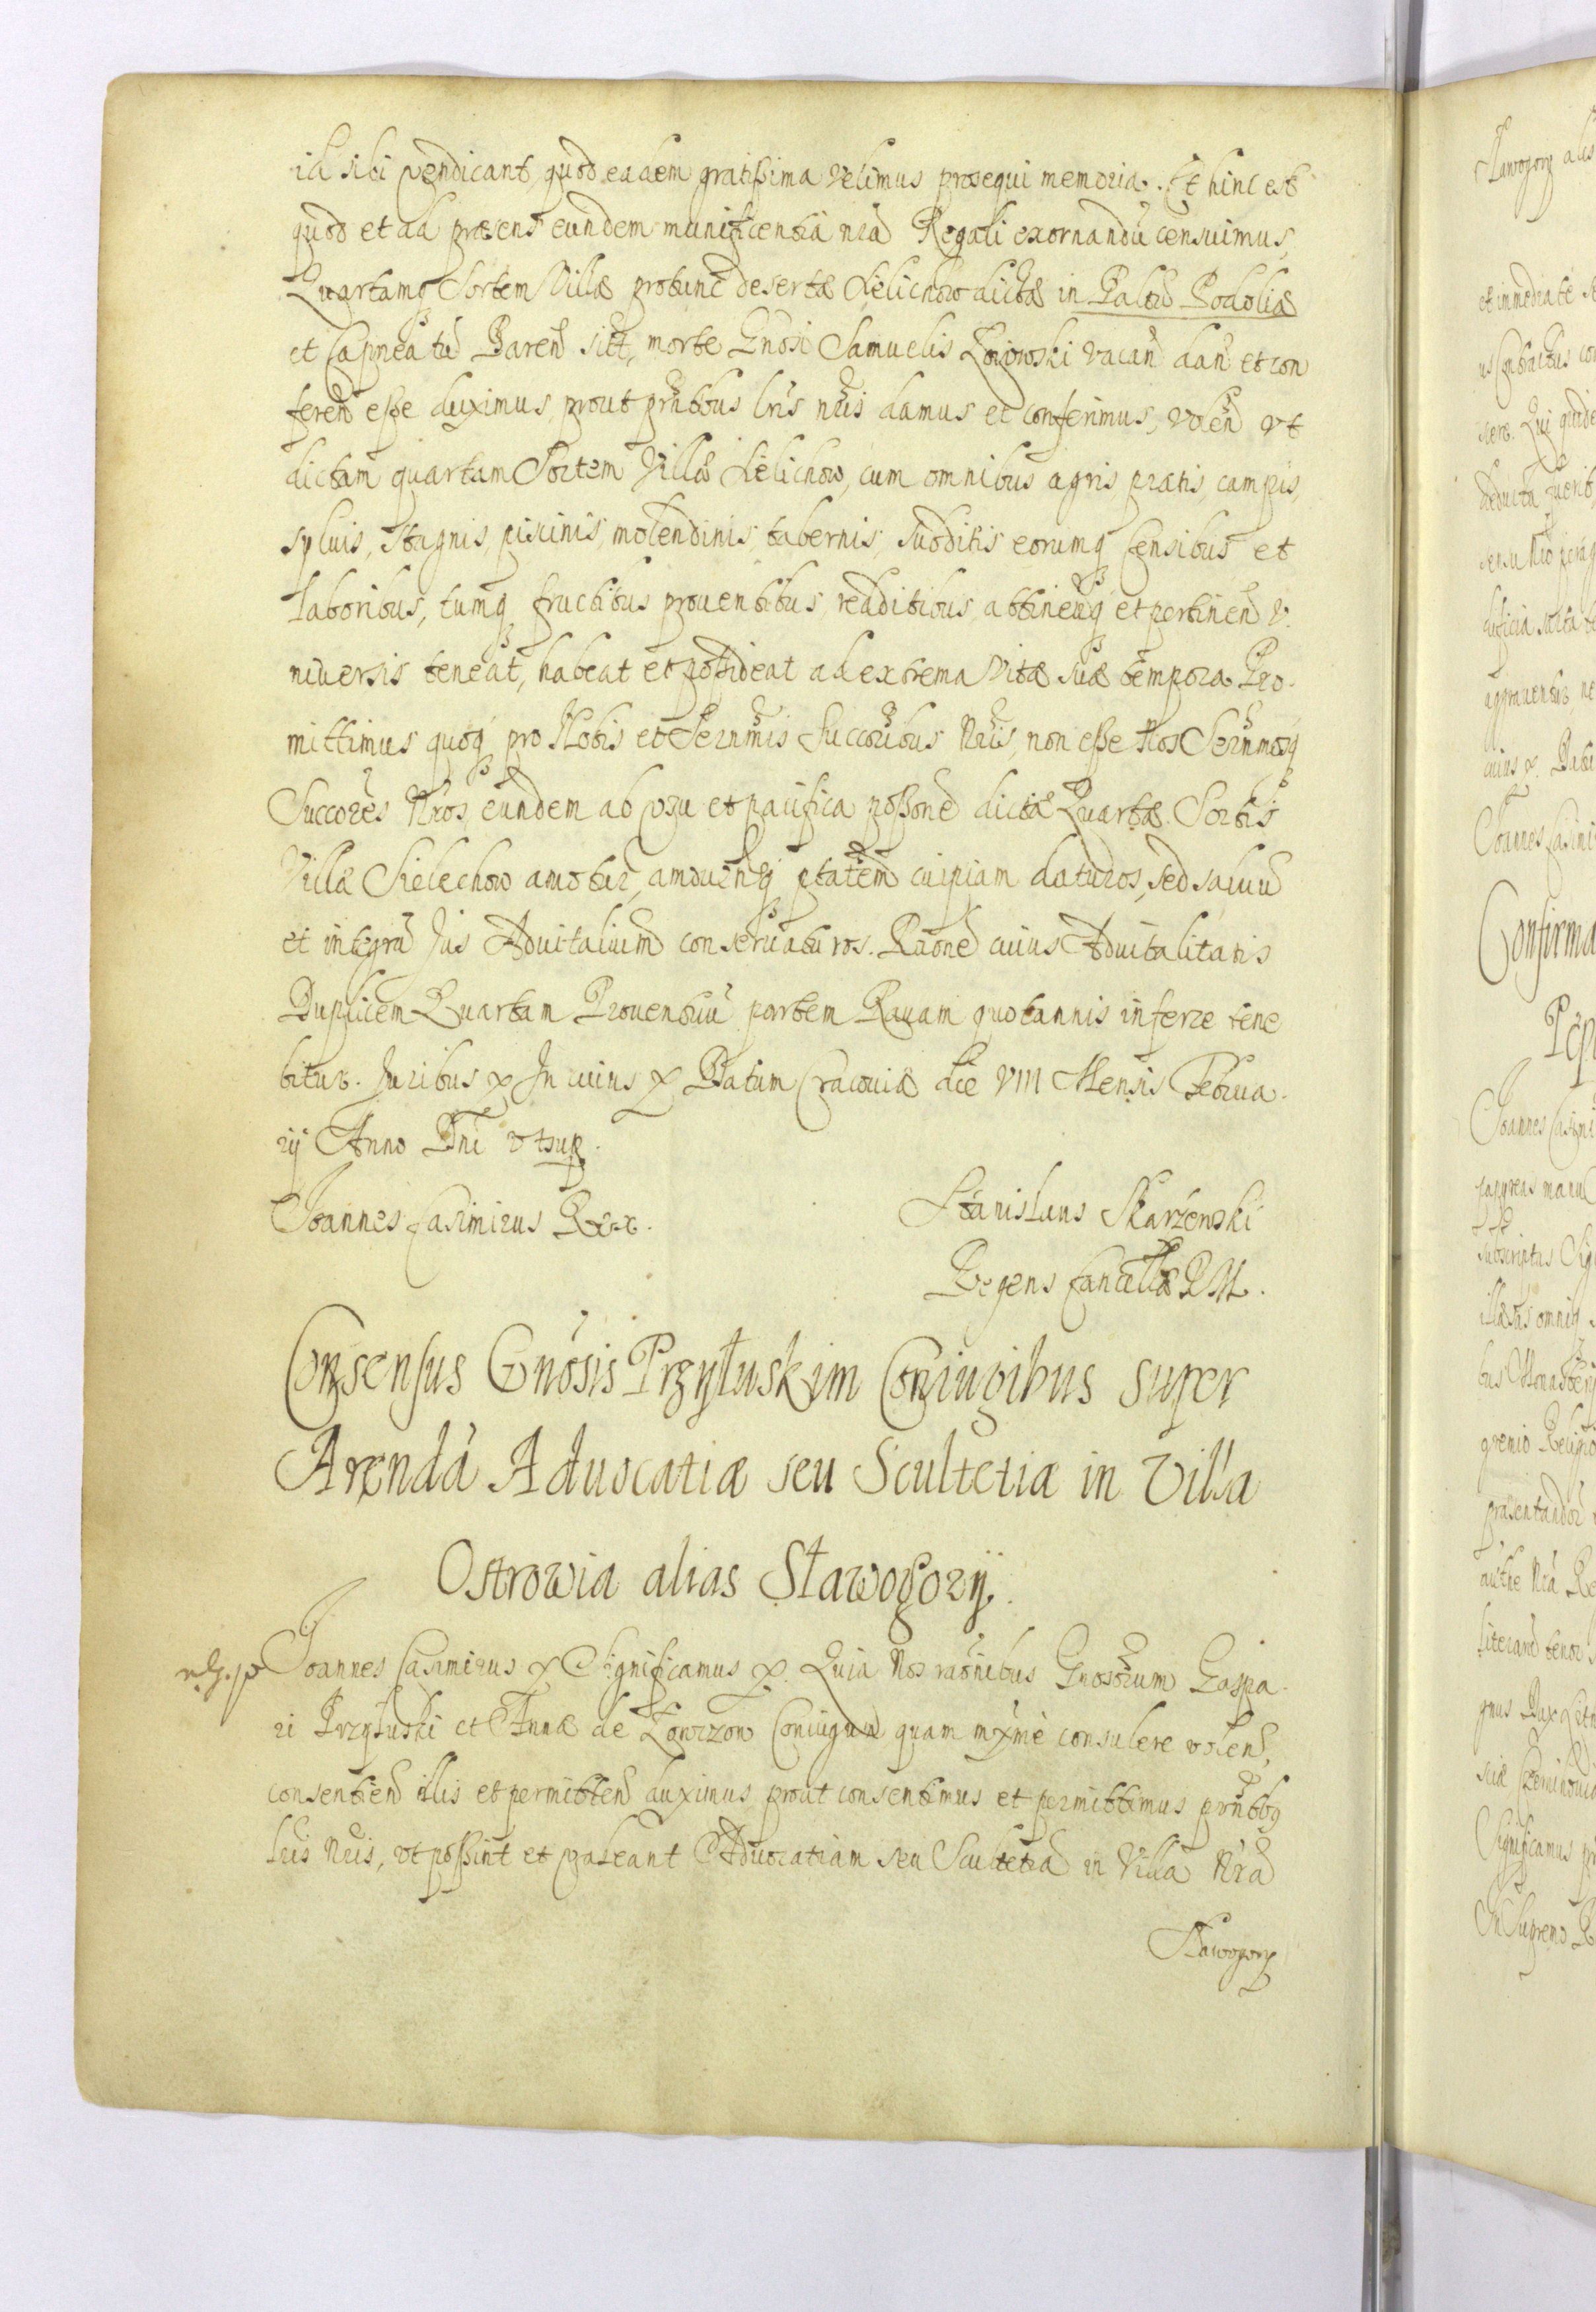 id sibi vendicant, quod eadem gratissima velimus prosequi memoria. Et hinc est
quod et ad præsens eundem munificentia nrã Regali exornandũ censuimus,
Quartamq Sortem Villæ protunc desertæ Sielichow dictæ in Palttũ Podoliæ
et Capneatũ Baren sitt, morte Gnosi Samuelis vacan dan et con
feren esse duximus, prout pñtibus lris nris damus et conferimus, volen vt
dictam quartam Sortem Villæ Sielichow, cum omnibus agris pratis, campis,
syluis, stagnis, piscinis, molendinis, tabernis, subditis eorumq censibus et
laboribus, tumq fructibus prouentibus reditibus, attinenq et pertinen v.
niuersis teneat, habeat et possideat ad extrema vitæ suæ tempora. Pro.
mittimus quoq pro Nobis et Sernmis Succoribus Nris, non esse Nos Sernmosq
Succores Nros, eundem ab vsu et pacifica possone dictæ Quartæ Sortis
Villæ Sielechow amotur, amouenq ptatem cuipiam daturos, sed saluũ
et integrũ Jus Aduitalium conseruaturos. Raone cuius Aduitalitatis
Duplicem Quartam Prouentuũ partem Rauam quotannis inferre tene
bitur. Juribus & In cuius & Datum Cracouiæ die VIII Mensis Februa.
rij Anno Dni vtsup.
Joannes Casimirus Rex.
Stanislaus Skarżenski
Regens Cancellæ R M.
Consensus Gnosis Przyłuskim Coniugibus super
Arendã Aduocatiæ seu Scultetiæ in Villa
Ostrowia alias Sławogory.
Joannes Casimirus & Significamus &. Quia Nos raonibus Gnosorum Gaspa.
ri Przyłuski et Annæ de Coniugum quam mxmè consulere volen,
consentien illis et permitten duximus, prout consentimus et permittimus pñtibq
lris Nris, vt possint et valeant Aduocatiam seu Scultetiã in Villa Nrã
Sławogory